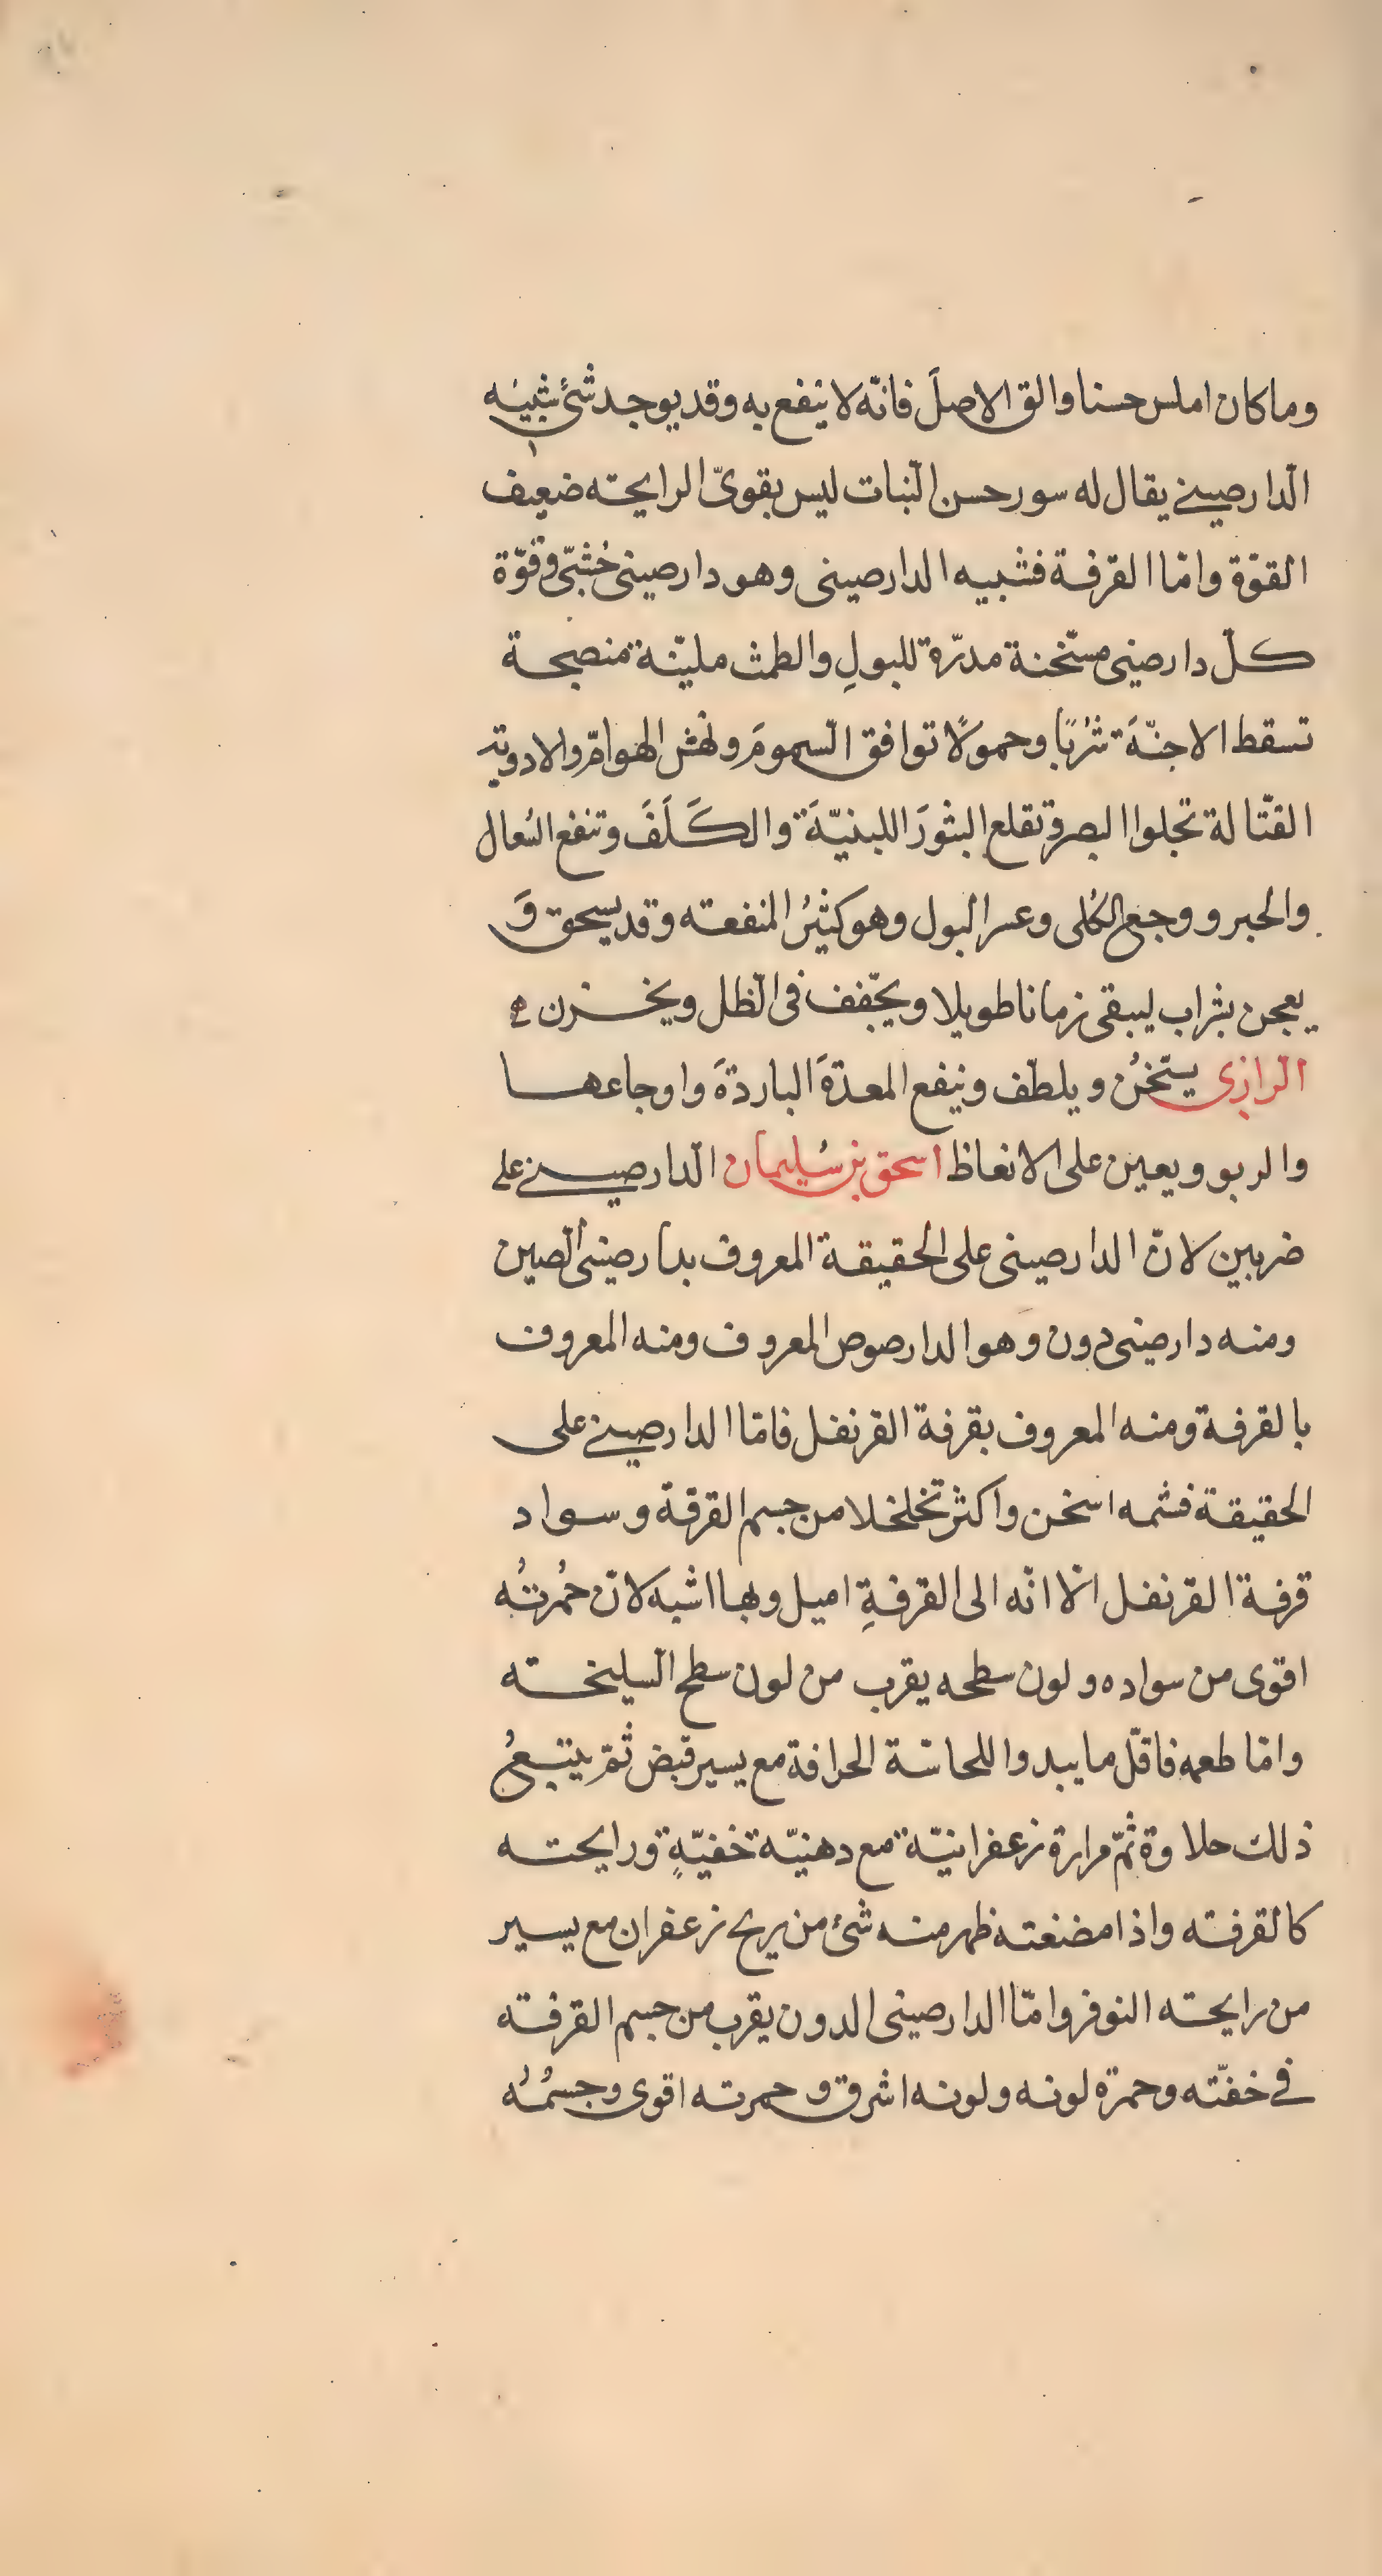 وما كان املس حسنا والق الاصلَ فانّه لا ينفع به وقد يوجد شئٌ شبيهُ
الّدارصينى يقال له سور حسن النّبات ليس بقوىّ الرايحته ضعيف
القوّة وامّا القرفة فشبيه الدارصينى وهو دارصينى خُشبّى وقوّة
كلّ دارصينى مسّخنة مدرّة للبولِ والطمث مليّنة منضجة
تسقط الاجنّةَ شُربًا وحمولًا توافق السّمومَ ونهش الهوامّ والادوية
القتّالة تجلوا البصر وتقلع البثورَ اللبنيّةَ والكَلَفَ وتنفع السُعال
والحبر و وجع الكُلى وعسر البول وهو كثيرُ المنفعته وقد يسحق وَ
يعجن بشراب ليبقى زمانا طويلا ويجّفف فى الّظل ويخزن
الرازى يسّخنُ ويلطّف وينفع المعدةَ الباردةَ واوجاعها
والربو ويعين على الانعاظ اسحق بن سُليمان الّدارصينى على
ضربين لانّ الدارصينى على الحقيقة المعروف بدارصينى الّصين
ومنه دارصينى دون وهو الدارصوص المعروف ومنه المعروف
بالقرفة ومنه المعروف بقرفة القرنفل فامّا الدارصينى على
الحقيقة فشمه اسخن واكثر تخلخلا من جسم القرقة وسواد
قرفة القرنفل الّا انّه الى القرفةِ اميل وبها اشبه لانّ حُمرتُه
اقوى من سواده ولون سطحه يقرب من لون سطح السّليخته
وامّا طعمه فاقلّ ما يبدوا للحاسّة الحرافة مع يسير قبض ثمّ يتبعُ
ذلك حلاوة ثمّ مرارة زعفرانيّة مع دهنيّة خفيّةٍ ورايحته
كالقرفته واذا مضغته ظهر منه شئ من ريح زعفران مع يسير
من رايحته النوفر وامّا الدارصينى الدون يقرب من جسم القرفته
فى خفّته وحمرة لونه ولونه اشرق وحمرته اقوى وجسمُه